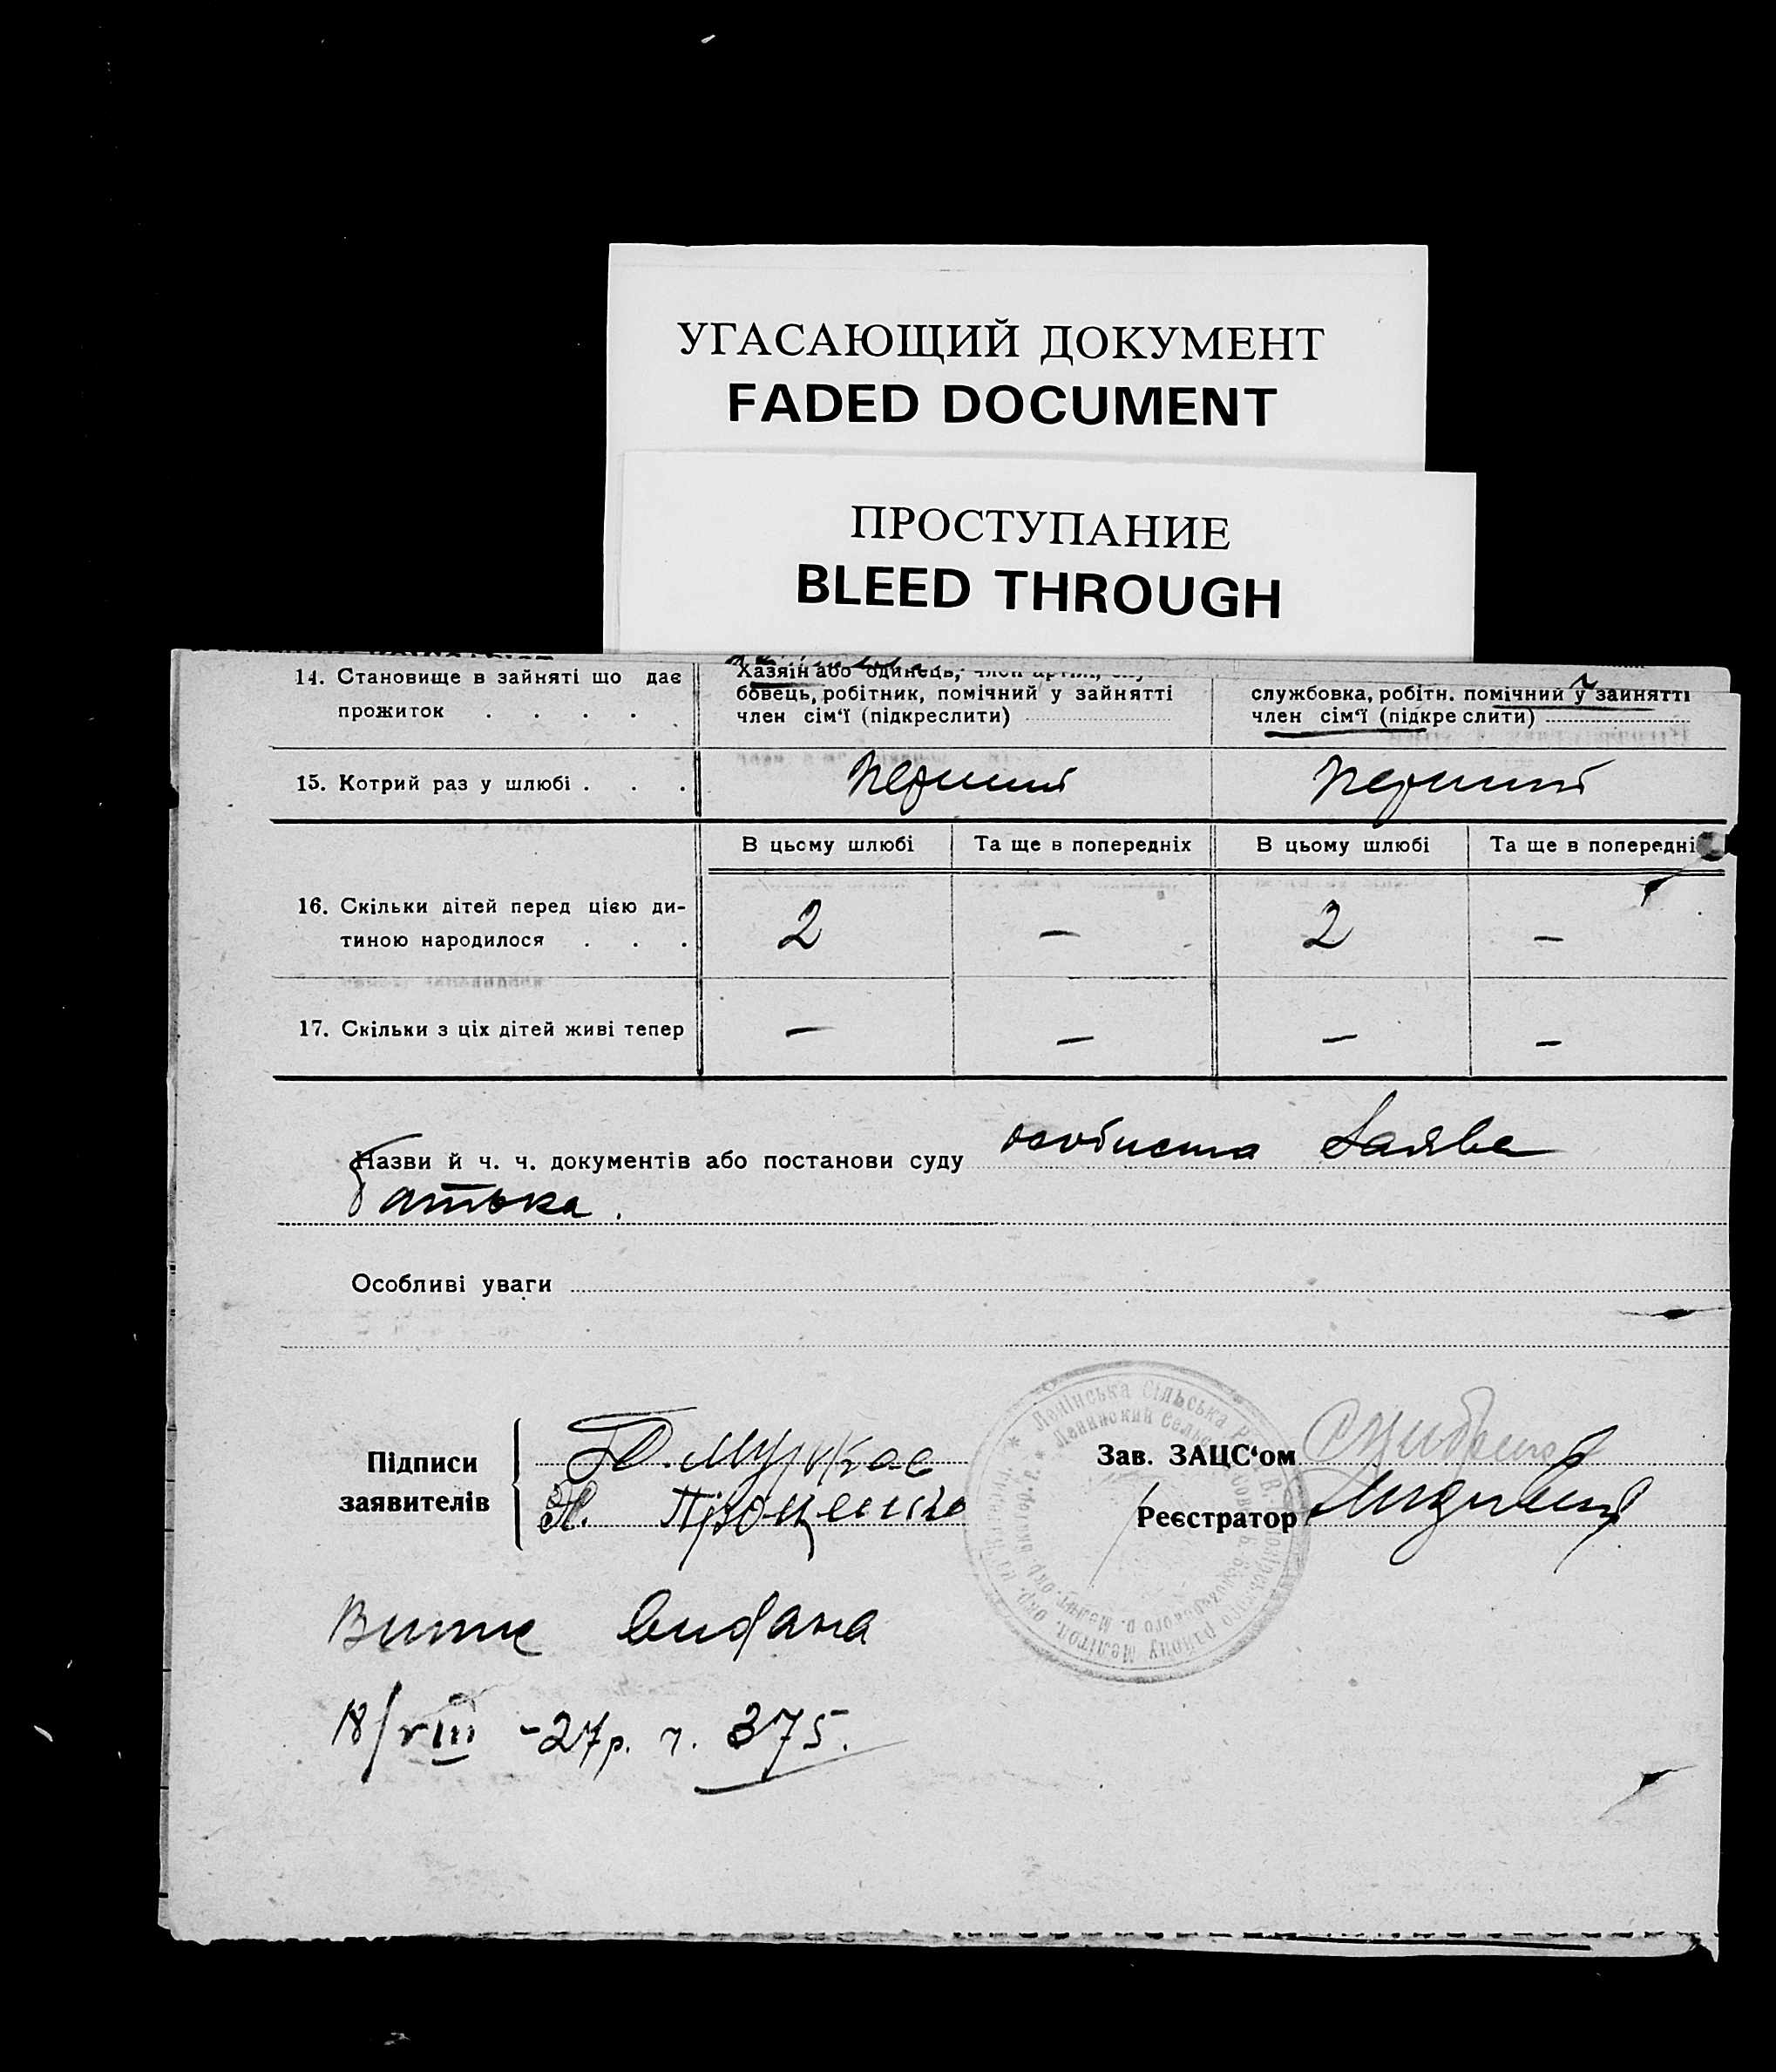 УГАСАЮЩИЙ ДОКУМЕНТ
FADED DOCUMENT
ПРОСТУПАНИЕ
BLEED THROUGH
14. Становище в зайняті що дає прожиток . . . .
Хазяін або одинець,
бовець, робітник, помічний у зайнятті
член сім'ї (підкреслити)
службовка, робітн. помічний у зайнятті
член сім'ї (підкреслити)
15. Котрий раз у шлюбі . . .
перший
перший
В цьому шлюбі
Та ще в попередніх
В цьому шлюбі
Та ще в попередні
16. Скільки дітей перед цією ди-
тиною народилося . . .
2 — 2 —
17. Скільки з ціх дітей живі тепер
— — — —
Назви й ч. ч. документів або постанови суду особиста Заява
батька.
Особливі уваги
Підписи
заявителів
Н. Проценко
Зав. ЗАЦС'ом
Реєстратор
Ленінська Сільська
Випис видана
18/VIII -27р. ч. 375.